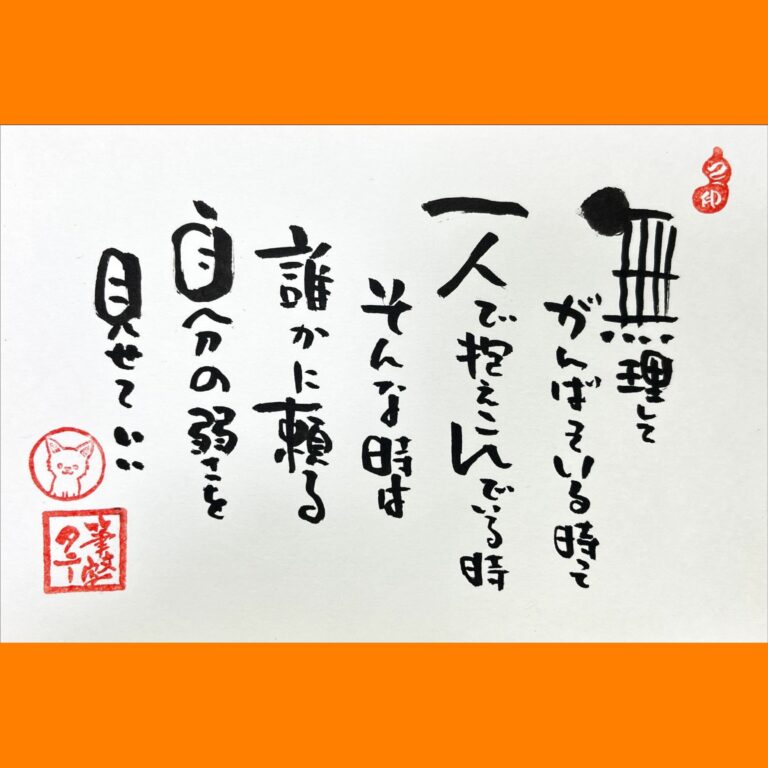 無理して
がんばている時って
一人で抱えこんでいる時
そんな時は
誰かに頼る
自分の弱さを
見せていい